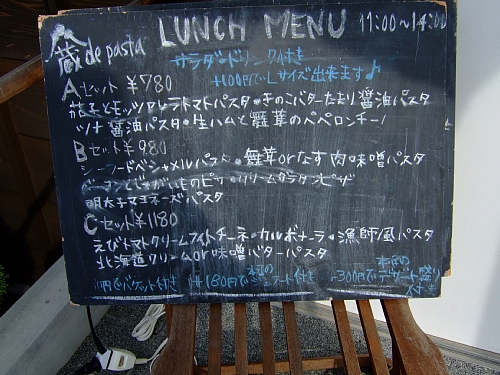 蔵 de pasta LUNCH MENU 11:00~14:00
サラダ・ドリンク付き
+100円でLサイズ出来ます♪
Aセット ¥780
茄子とモッツァレラトマトパスタ・きのこバターたまり醤油パスタ
ツナ醤油パスタ・生ハムと舞茸のペペロンチーノ
Bセット ¥980
シーフードベシャメルパスタ・舞茸orなす肉味噌パスタ
ピザ
明太子マヨネーズパスタ
Cセット ¥1180
えびトマトクリームフィットチーネ・カルボナーラ・漁師風パスタ
北海道クリームor味噌バターパスタ
円でバケット付き +180円で本日の付き +300円で本日のデザート盛り